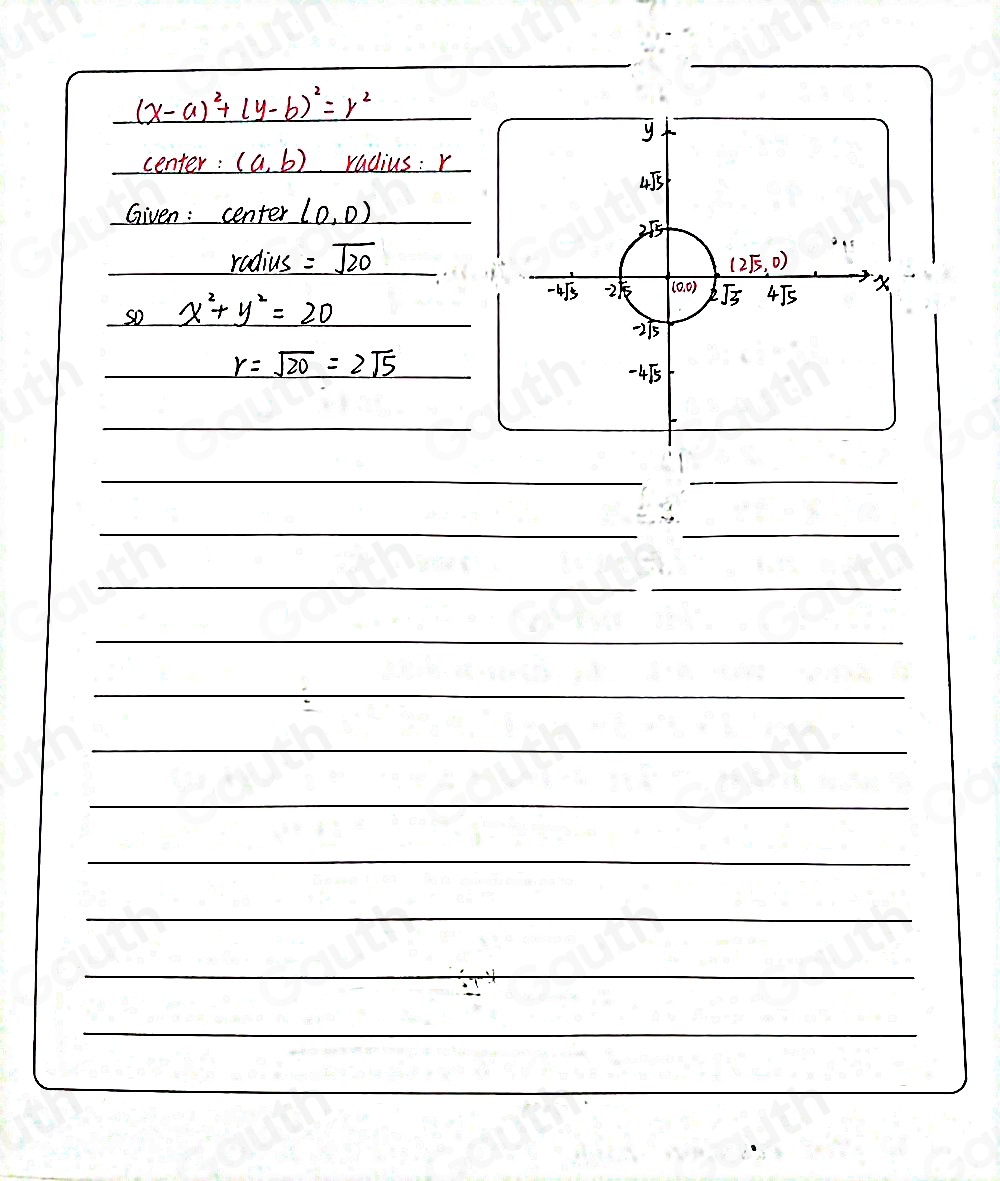 (x-a)²+(y-b)²=r²
center: (a,b) radius: r
Given: center (0,0)
radius = √20
so x²+y²=20
r=√20=2√5
y
4√5
2√5
(2√5,0)
-4√5 -2√5 (0,0) 2√5 4√5 x
-2√5
-4√5
Gauth